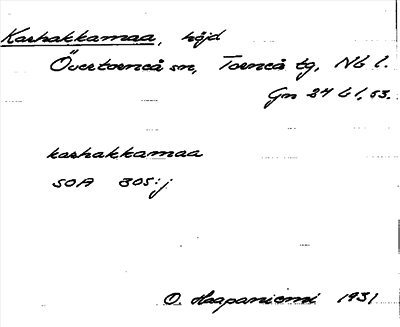 Karhakkamaa, höjd
Övertorneå sn, Torneå tg, Nb l.
Gn 24 b l, 53.
karhakkamaa
SOA 305:j
O. Haapaniemi 1931